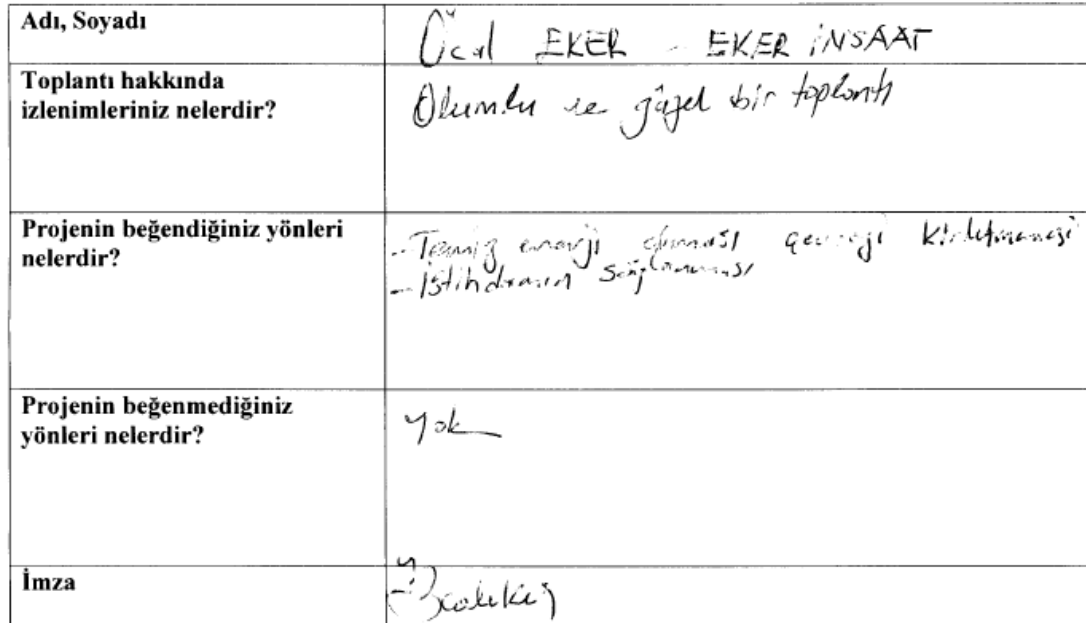 Adı, Soyadı
Öcal EKER - EKER İNŞAAT
Toplantı hakkında
izlenimleriniz nelerdir?
Olumlu ve güzel bir toplantı
Projenin beğendiğiniz yönleri
nelerdir?
- Temiz enerji olması çevreyi kirletmemesi
- İstihdamın sağlanması
Projenin beğenmediğiniz
yönleri nelerdir?
yok
İmza